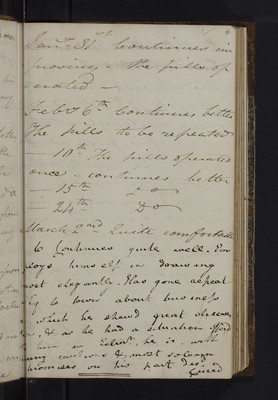 Jany 31st Continues im
proving - the pills op
erated -
Feby 6th Continues better
The pills to be repeated
- 10th The pills operated
once - continues better
- 15th Do
- 24th Do
March 2nd Quite comfortable
6 Continues quite well. Em
ploys himself in drawing
most elegantly. Has gone repeat
to town about business
in which he shewd great
& as he had a situation
him in he is, with
many cautions & most solemn
promises on his part disd
Cured